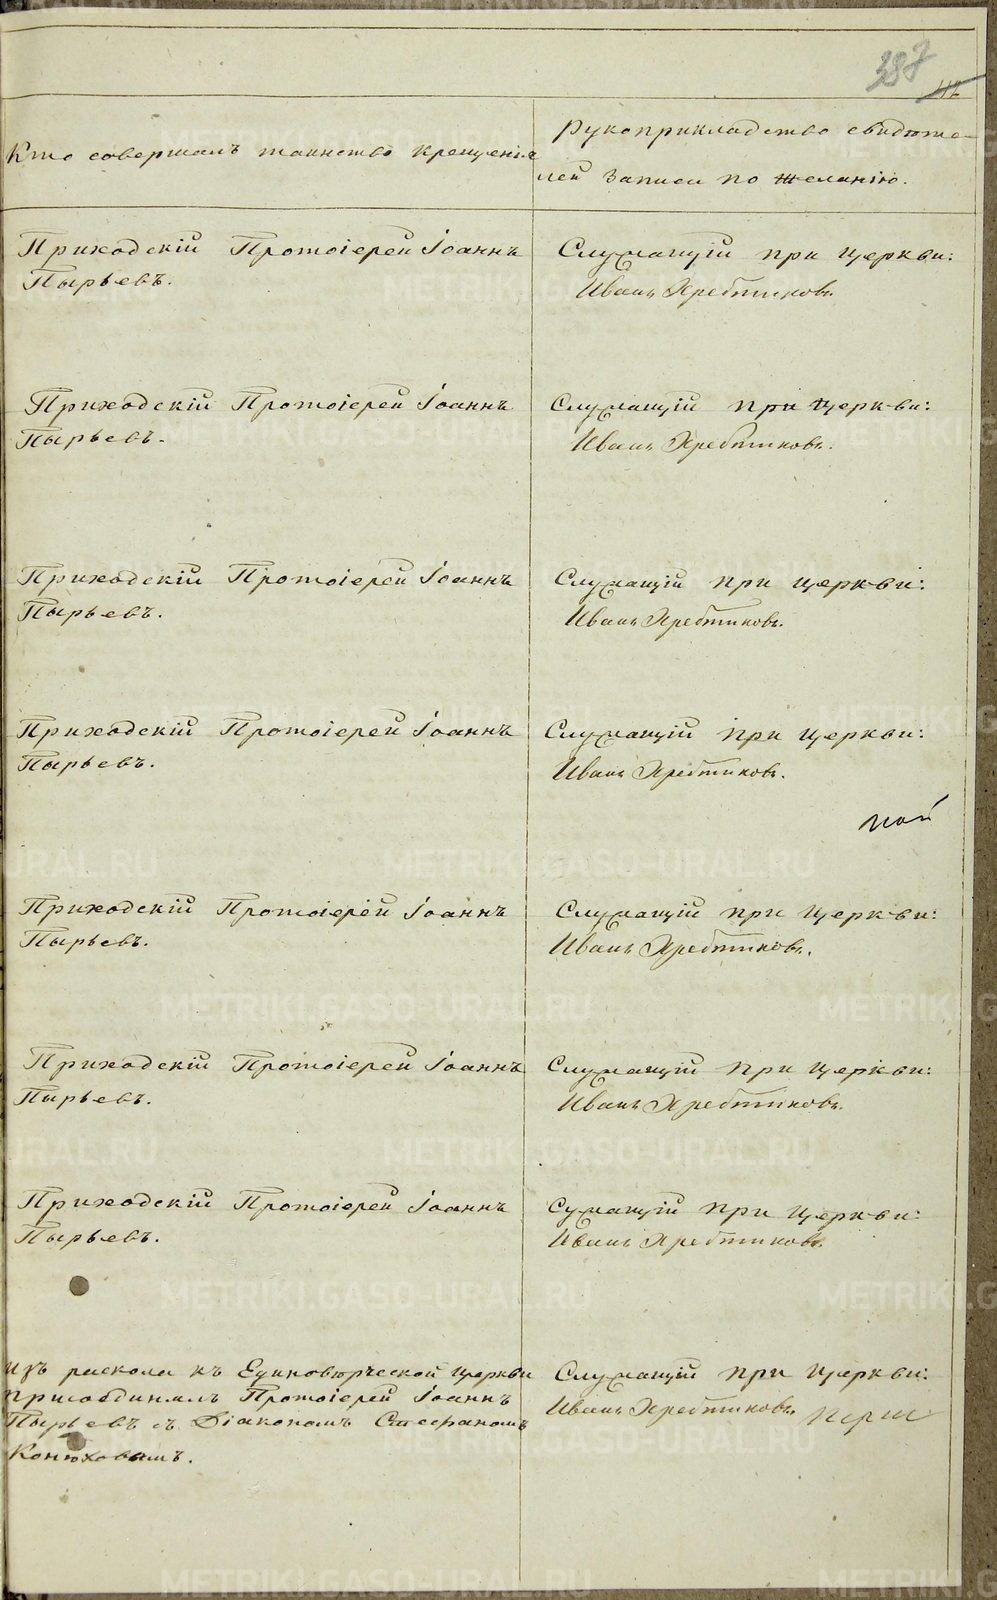 387
412
Кто совершалъ таинство крещенія
Рукоприкладство свидѣте-
лей записи по желанію.
Приходскій Протоіерей Іоаннъ
Пырьевъ.
Служащій при церкви:
Иванъ Хребтиковъ.
Приходскій Протоіерей Іоаннъ
Пырьевъ.
Служащій при церкви:
Иванъ Хребтиковъ.
Приходскій Протоіерей Іоаннъ
Пырьевъ.
Служащій при церкви:
Иванъ Хребтиковъ.
Приходскій Протоіерей Іоаннъ
Пырьевъ.
Служащій при церкви:
Иванъ Хребтиковъ.
Приходскій Протоіерей Іоаннъ
Пырьевъ.
Служащій при церкви:
Иванъ Хребтиковъ.
Приходскій Протоіерей Іоаннъ
Пырьевъ.
Служащій при церкви:
Иванъ Хребтиковъ.
Приходскій Протоіерей Іоаннъ
Пырьевъ.
Сужащій при церкви:
Иванъ Хребтиковъ.
Изъ раскола къ Единовѣрческой церкви
присоединялъ Протоіерей Іоаннъ
Пырьевъ съ Діакономъ Стефаномъ
Конюховымъ.
Служащій при церкви:
Иванъ Хребтиковъ.
METRIKI.GASO-URAL.RU